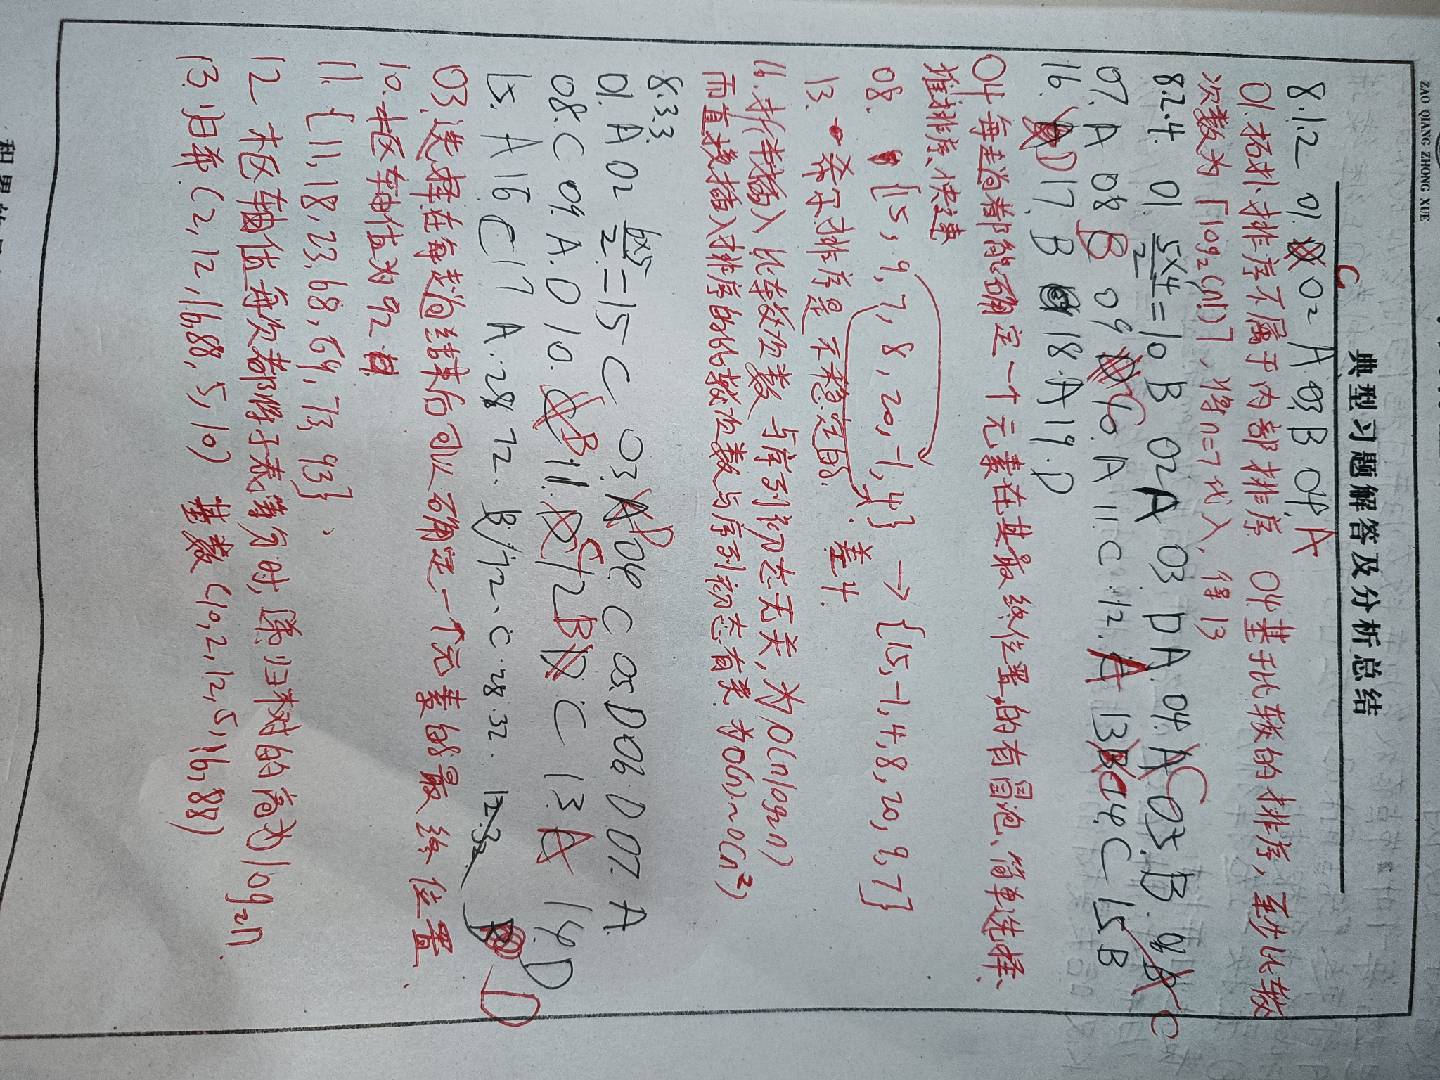 ZAO QIANG ZHONG XUE
典型习题解答及分析总结
C
8.1.2 01. 02 A 03. B 04. A
01.拓扑排序不属于内部排序 04基于比较的排序，至少比较
次数为「log₂(n!)⌉，将n=7代入，得13
8.2.4. 01. 5×4/2=10 B 02A 03. D A. 04. A C 05. B. 06 A C
07. A 08 B 09 D C 10. A 11. C. 12. A 13 B C 14. C 15. B
16. A D 17. B 18. A 19. D
04.每走趟都能确定一个元素在其最终位置的有冒泡、简单选择、
堆排序、快速
08. {15, 9, 7, 8, 20, -1, 4} → {15, -1, 4, 8, 20, 9, 7}
差4.
13. 希尔排序是不稳定的.
16.折半插入比较次数与序列初态无关,为O(nlog₂n)
而直接插入排序的比较次数与序列初态有关.为O(n)~O(n²)
8.3.3.
01. A 02 6×5/2=15 C 03. A D 04. C 05. D 06. D 07. A.
08. C 09. A. D 10. C B 11. D C 12 B D C 13. A 14. D
15. A 16 C 17 A. 28 72. B/72. C. 28. 32. 12.32 B D
03.选择在每趟结束后可以确定一个元素的最终位置.
10.枢轴值为92
11. {11, 18, 23, 68, 69, 73, 93}
12 枢轴值每次都将子表等分时,递归树的高为log₂n.
13.归并(2, 12, 16, 88, 5, 10) 基数(10, 2, 12, 5, 16, 88)